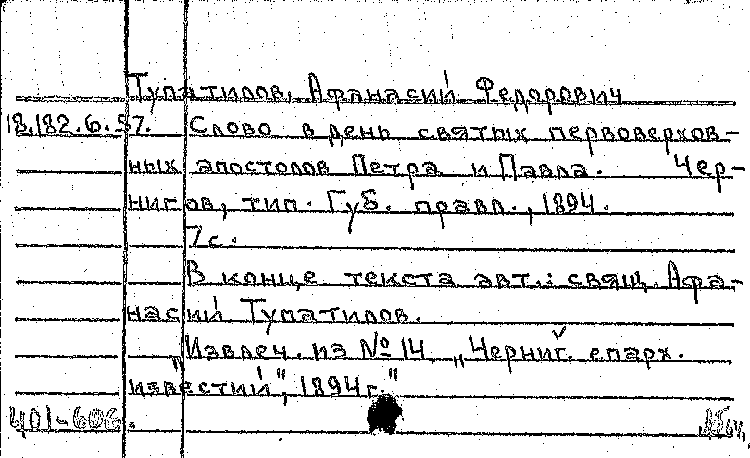 Тупатилов, Афанасий Федорович
18.182.6.57. Слово в день святых первоверхов-
ных апостолов Петра и Павла. Чер-
нигов, тип. Губ. правл., 1894.
7 с.
В конце текста авт.: свящ. Афа-
насий Тупатилов.
Извлеч. из № 14 „Черниг. епарх.
известий", 1894 г."
401-606.